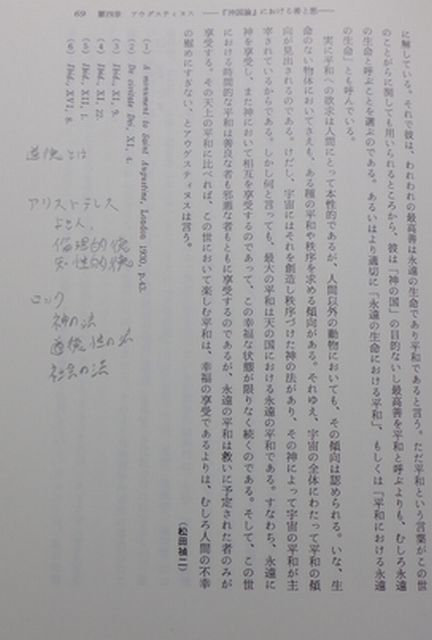 69　第四章　アウグスティヌス　――『神国論』における善と悪――
に無している。それで彼は、われわれの最高善は永遠の生命であり平和であると言う。ただ平和という言葉がこの世
のことがらに関しても用いられるところから、彼は「神の国」の目的ないし最高善を平和と呼ぶよりも、むしろ永遠
の生命と呼ぶことを選ぶのである。あるいはより適切に「永遠の生命における平和」、もしくは「平和における永遠
の生命」とも呼んでいる。
実に平和への欲求は人間にとって本性的であるが、人間以外の動物においても、その傾向は認められる。いな、生
命のない物体においてさえも、ある種の平和や秩序を求める傾向がある。それゆえ、宇宙の全体にわたって平和の傾
向が見出されるのである。けだし、宇宙にはそれを創造し秩序づけた神の法があり、その神によって宇宙の平和が主
宰されているからである。しかし何と言っても、最大の平和は天の国における永遠の平和である。すなわち、永遠に
神を享受し、また神において相互を享受するのであって、この幸福な状態が限りなく続くのである。そして、この世
における時間的な平和は善良な者も邪悪な者もともに享受するのであるが、永遠の平和は救いに予定された者のみが
享受する。その天上の平和に比べれば、この世において楽しむ平和は、幸福の享受であるよりは、むしろ人間の不幸
の慰めにすぎない、とアウグスティヌスは言う。
（松田禎二）
(1) A monument to Saint Augustine, London 1930, p.43.
(2) De civitate Dei, XI, 4.
(3) Ibid., XI, 9.
(4) Ibid., XI, 22.
(5) Ibid., XII, 1.
(6) Ibid., XVI, 8.
道徳とは
アリストテレス
よき人、
倫理的徳
知性的徳
ロック
神の法
道徳性の法
社会の法